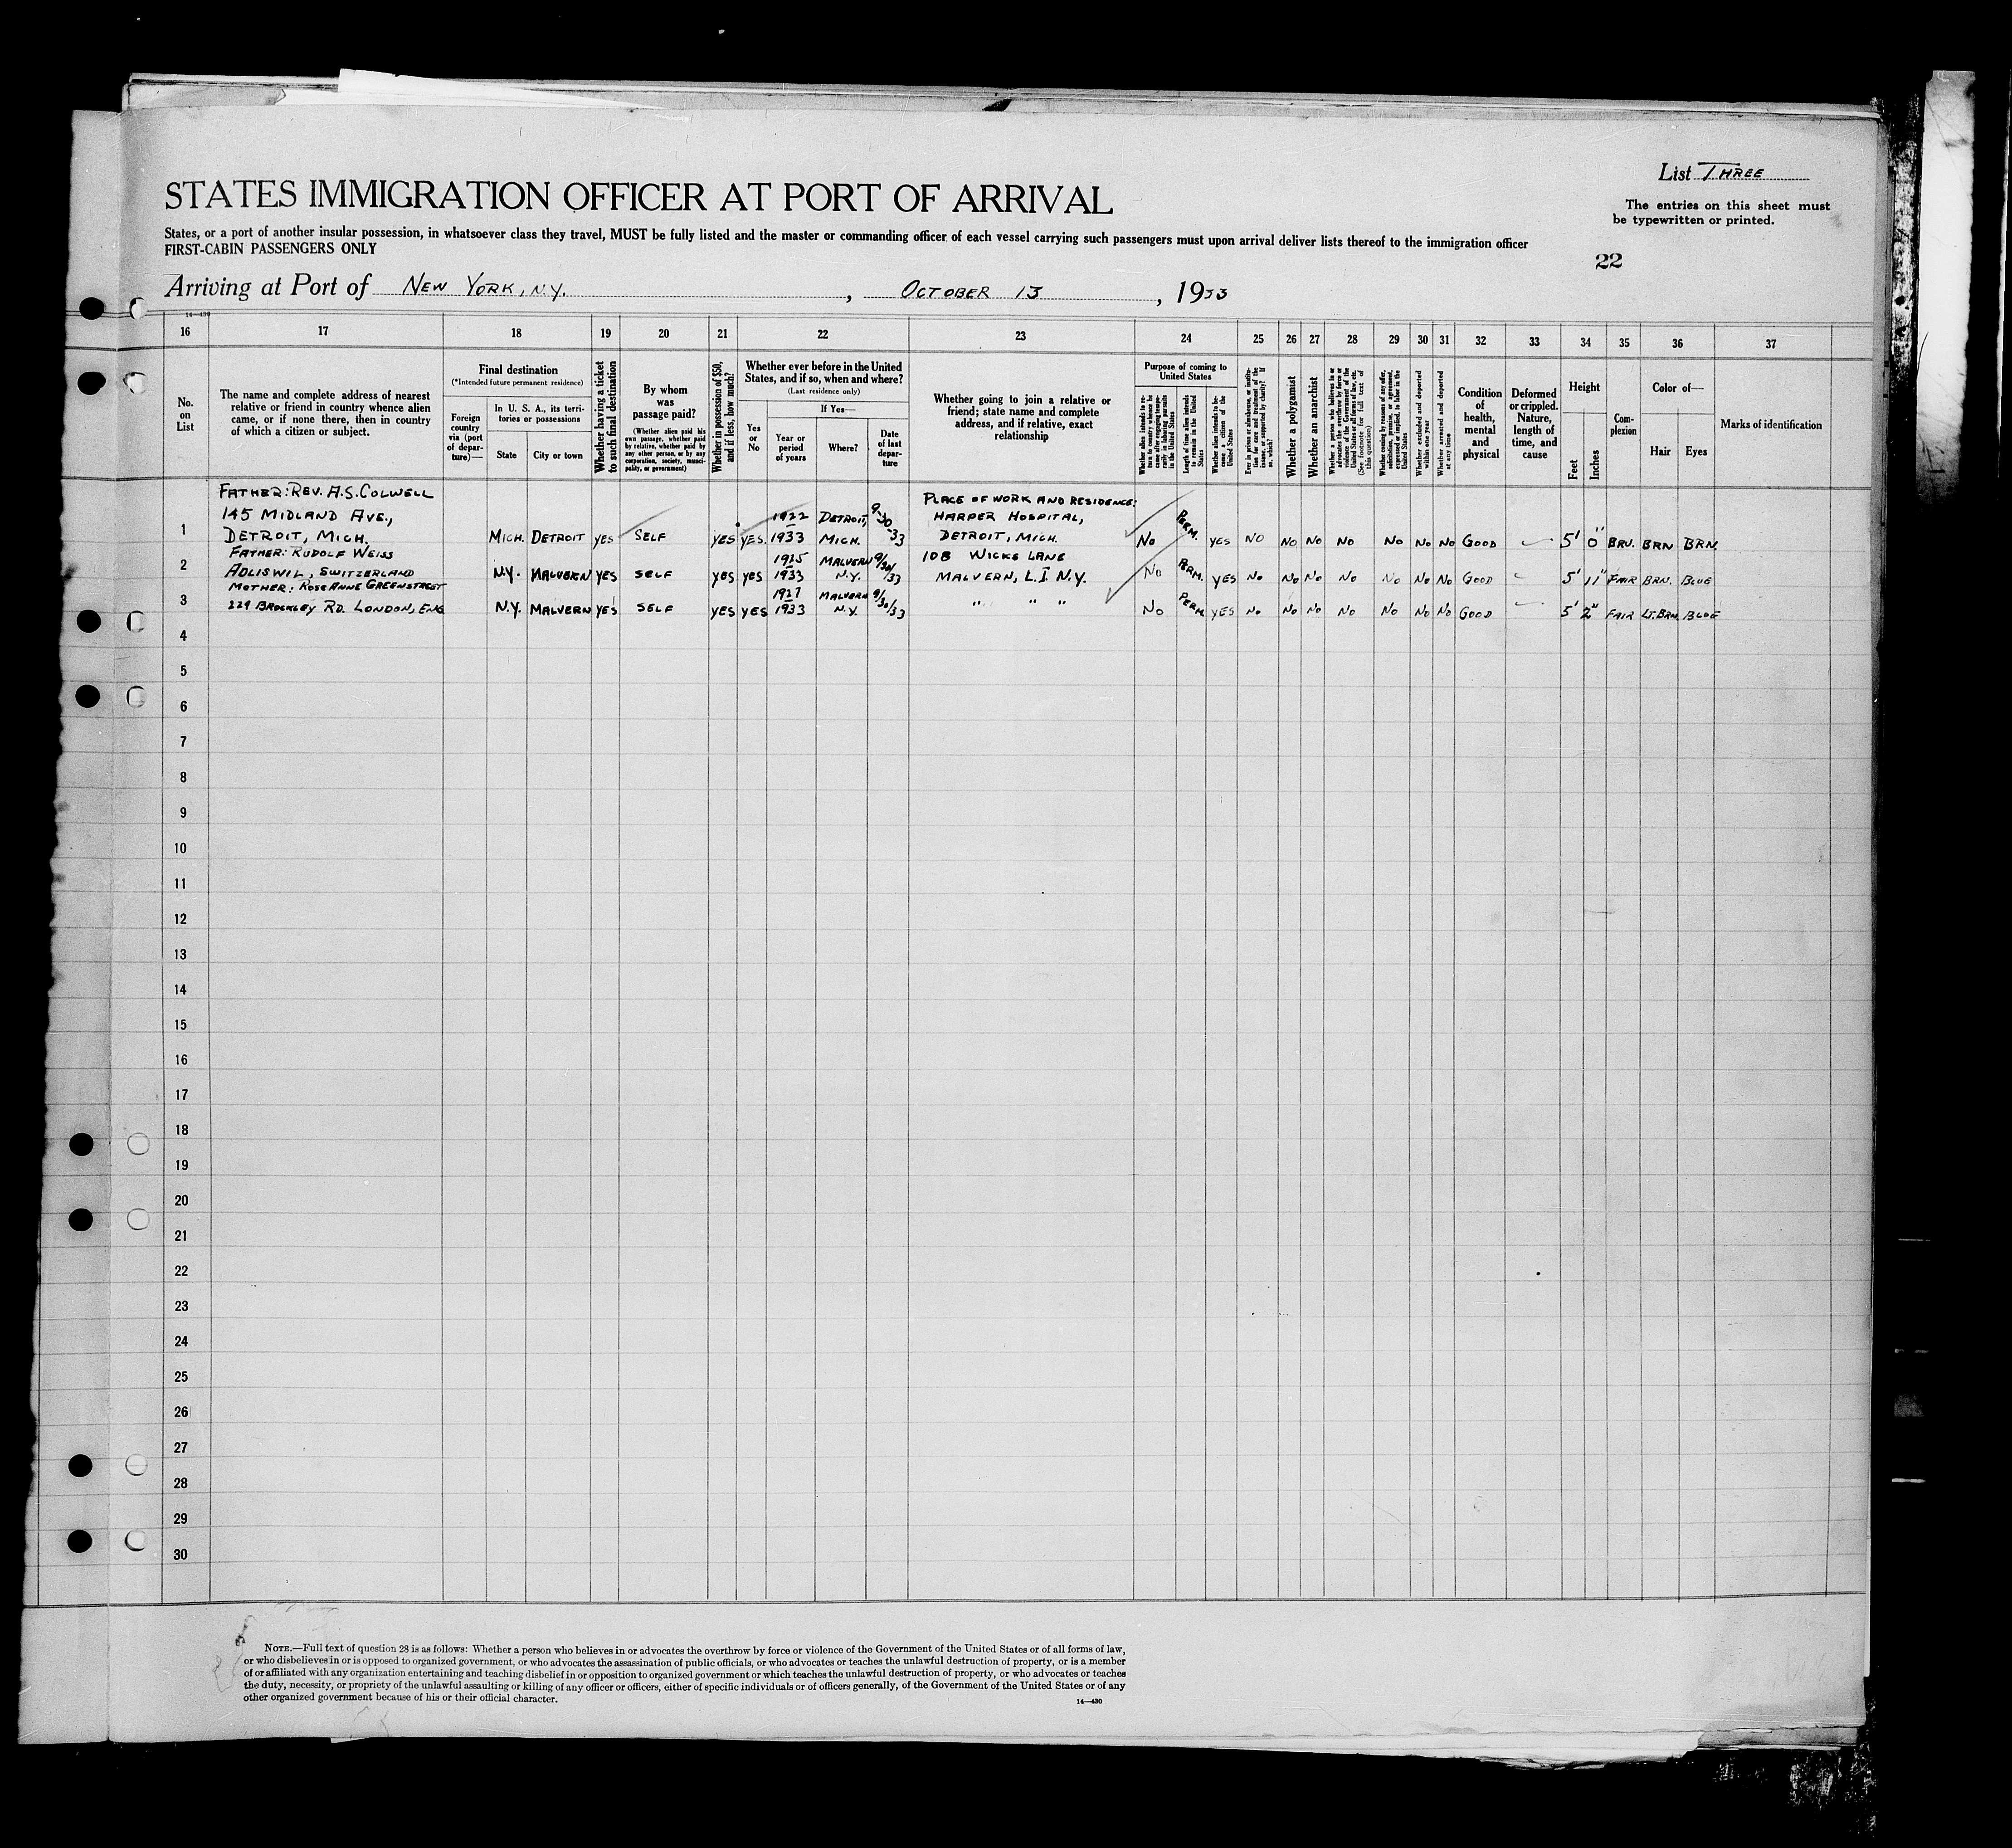 List THREE
STATES IMMIGRATION OFFICER AT PORT OF ARRIVAL
The entries on this sheet must
be typewritten or printed.
States, or a port of another insular possession, in whatsoever class they travel, MUST be fully listed and the master or commanding officer of each vessel carrying such passengers must upon arrival deliver lists thereof to the immigration officer
FIRST-CABIN PASSENGERS ONLY
22
Arriving at Port of NEW YORK, N.Y. , OCTOBER 13 , 1933
14—430
16 17 18 19 20 21 22 23 24 25 26 27 28 29 30 31 32 33 34 35 36 37
No.
on
List
The name and complete address of nearest
relative or friend in country whence alien
came, or if none there, then in country
of which a citizen or subject.
Final destination
(*Intended future permanent residence)
Foreign
country
via (port
of depar-
ture)—
In U. S. A., its terri-
tories or possessions
State City or town
Whether having a ticket
to such final destination
By whom
was
passage paid?
(Whether alien paid his
own passage, whether paid
by relative, whether paid by
any other person, or by any
corporation, society, munici-
pality, or government)
Whether in possession of $50,
and if less, how much?
Whether ever before in the United
States, and if so, when and where?
(Last residence only)
Yes
or
No
If Yes—
Year or
period
of years
Where?
Date
of last
depar-
ture
Whether going to join a relative or
friend; state name and complete
address, and if relative, exact
relationship
Purpose of coming to
United States
Length of time alien intends
to remain in the United
States
Whether alien intends to be-
come a citizen of the
United States
Whether a polygamist
Whether an anarchist
(See footnote for full text of
this question)
Whether excluded and deported
within one year
Whether arrested and deported
at any time
Condition
of
health,
mental
and
physical
Deformed
or crippled.
Nature,
length of
time, and
cause
Height
Feet Inches
Com-
plexion
Color of—
Hair Eyes
Marks of identification
1 FATHER: REV. A.S. COLWELL
145 MIDLAND AVE.,
DETROIT, MICH. MICH. DETROIT YES SELF YES YES. 1922
—
1933 DETROIT, MICH. 9-30-33 PLACE OF WORK AND RESIDENCE:
HARPER HOSPITAL,
DETROIT, MICH. NO PERM. YES NO NO NO NO NO NO NO GOOD 5' 0" BRN. BRN BRN.
2 FATHER: RUDOLF WEISS
ADLISWIL, SWITZERLAND N.Y. MALVERN YES SELF YES YES 1925
—
1933 MALVERN N.Y. 9/30/33 108 WICKS LANE
MALVERN, L.I. N.Y. NO PERM. YES NO NO NO NO NO NO NO GOOD 5' 11" FAIR BRN. BLUE
3 MOTHER: ROSE ANNE GREENSTREET
229 BROCKLEY RD. LONDON, ENG. N.Y. MALVERN YES SELF YES YES 1927
—
1933 MALVERN N.Y. 9/30/33 " " " NO PERM. YES NO NO NO NO NO NO NO GOOD 5' 2" FAIR LT. BRN. BLUE
4
5
6
7
8
9
10
11
12
13
14
15
16
17
18
19
20
21
22
23
24
25
26
27
28
29
30
NOTE.—Full text of question 28 is as follows: Whether a person who believes in or advocates the overthrow by force or violence of the Government of the United States or of all forms of law,
or who disbelieves in or is opposed to organized government, or who advocates the assassination of public officials, or who advocates or teaches the unlawful destruction of property, or is a member
of or affiliated with any organization entertaining and teaching disbelief in or opposition to organized government or which teaches the unlawful destruction of property, or who advocates or teaches
the duty, necessity, or propriety of the unlawful assaulting or killing of any officer or officers, either of specific individuals or of officers generally, of the Government of the United States or of any
other organized government because of his or their official character.
14—430